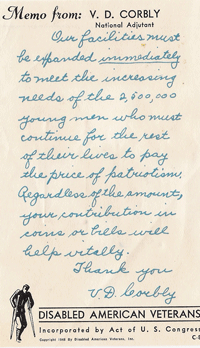 Memo from: V. D. CORBLY
National Adjutant
Our facilities must
be expanded immediately
to meet the increasing
needs of the 2,500,000
young men who must
continue for the rest
of their lives to pay
the price of patriotism.
Regardless of the amount,
your contribution in
coins or bills will
help vitally.
Thank you
V. D. Corbly
DISABLED AMERICAN VETERANS
Incorporated by Act of U. S. Congress
Copyright by Disabled American Veterans, Inc.